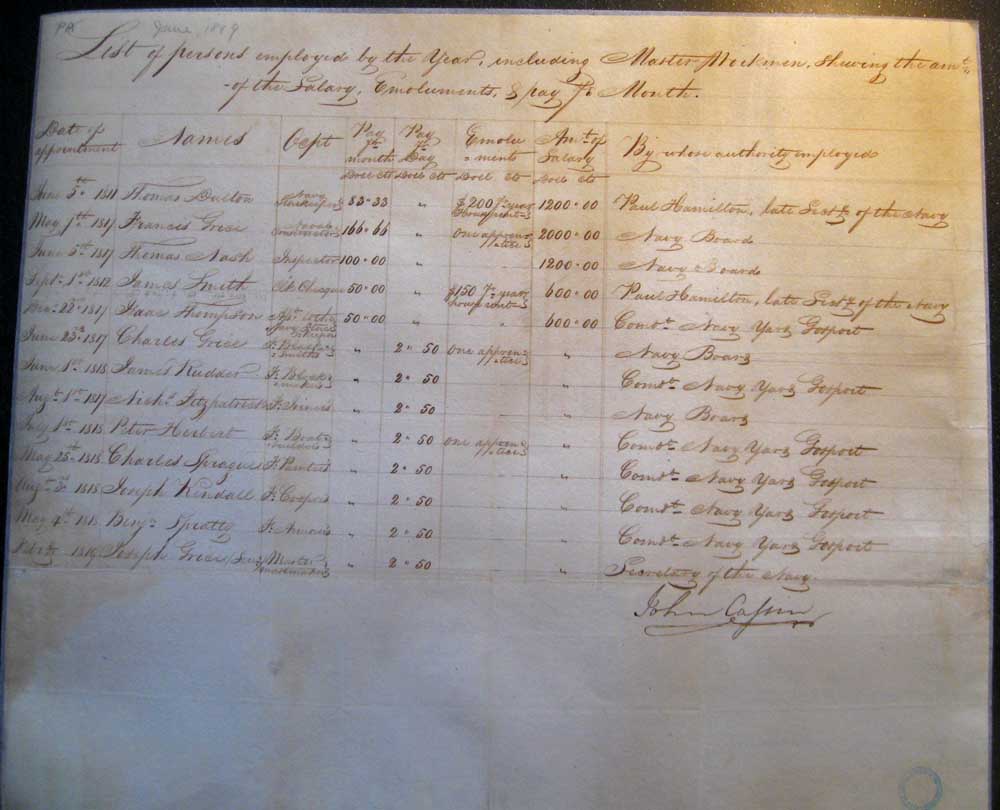 PA June, 1819
List of persons employed by the Year, including Master Workmen, shewing the amt.
of the Salary, Emoluments, & pay Pr. Month.
Date of appointment Names Capt Pay Pr. month Pay Pr. Day Emolu=ments Amt. of Salary By whose authority employed
Doll Cts Doll Cts Doll Cts Doll Cts
June 5th. 1811 Thomas Dalton Navy Storekeeper 83"33 " $200 Pr. year 1200"00 Paul Hamilton, late Sect.y of the Navy
May 1st. 1817 Francis Grice Naval Constructor 166"66 " one appren=tice 2000"00 Navy Board
June 5th. 1817 Thomas Nash Inspector 100"00 1200"00 Navy Board
Sept. 1st. 1812 James Smith Clk Cheque 50"00 " $150 Pr. year 600"00 Paul Hamilton, late Sect.y of the Navy
22d. 1817 Isaac Thompson Navy Store 50"00 " " 600"00 Comdt. Navy Yard Gosport
June 23d. 1817 Charles Grice Smiths " 2"50 one appren=tice " Navy Board
June 1st. 1818 James Rudder F. Block makers " 2"50 " Comdt. Navy Yard Gosport
Augt. 1st. 1817 Nichs. Fitzpatrick F. " 2"50 " Navy Board
July 1st. 1818 Peter Herbert F. Boat builders " 2"50 one appren=tice " Comdt. Navy Yard Gosport
May 25th. 1818 Charles Sprague F. Painters " 2"50 " Comdt. Navy Yard Gosport
Augt. 1818 Joseph Kindall F. Coopers " 2"50 " Comdt. Navy Yard Gosport
May 4th. 1818 Benj. Spratty F. " 2"50 " Comdt. Navy Yard Gosport
1819 Joseph Grice Senr. Master " 2"50 " Secretary of the Navy
John Cassin